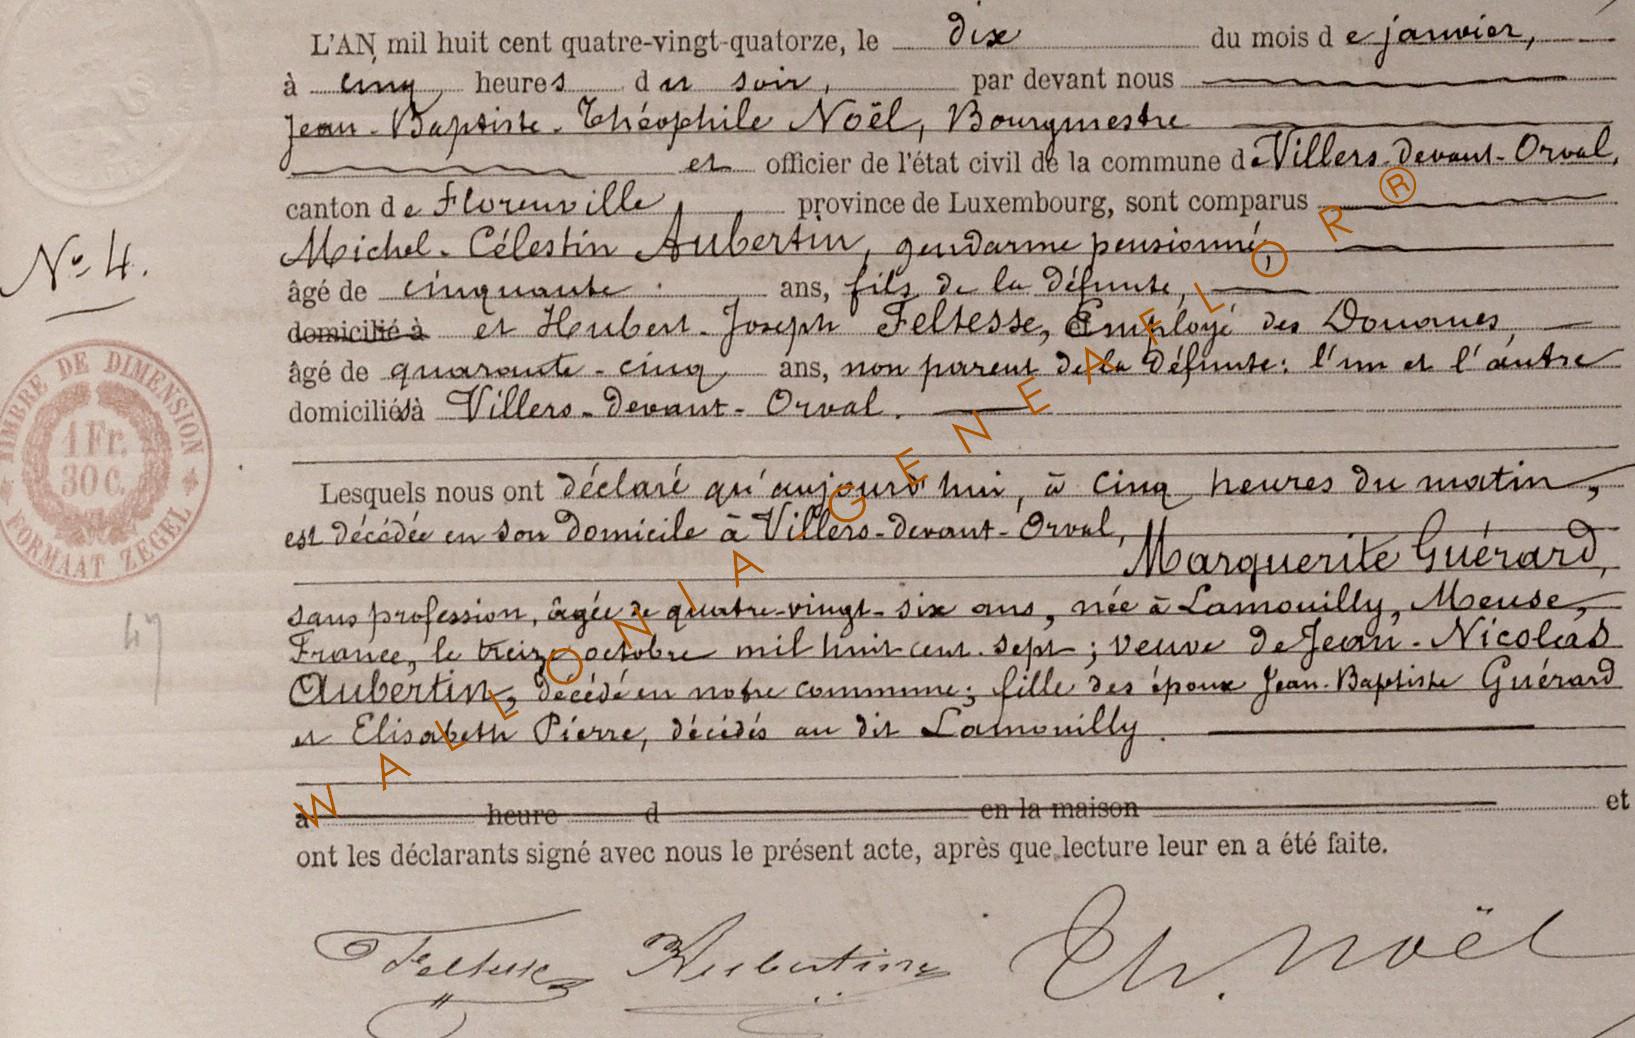 L'AN mil huit cent quatre-vingt-quatorze, le dix du mois de janvier,
à cinq heures du soir, par devant nous
Jean-Baptiste-Théophile Noël, Bourgmestre
et officier de l'état civil de la commune de Villers-devant-Orval,
canton de Florenville, province de Luxembourg, sont comparus
Michel-Célestin Aubertin, gendarme pensionné,
N° 4.
âgé de cinquante ans, fils de la défunte,
domicilié à et Hubert-Joseph Feltesse, Employé des Douanes,
âgé de quarante-cinq ans, non parent de la défunte: l'un et l'autre
domiciliés à Villers-devant-Orval.
TIMBRE DE DIMENSION
1 Fr.
30 C.
FORMAAT ZEGEL
Lesquels nous ont déclaré qu'aujourd'hui, à cinq heures du matin,
est décédée en son domicile à Villers-devant-Orval,
Marguerite Guérard,
sans profession, âgée de quatre-vingt-six ans, née à Lamouilly, Meuse,
France, le treize octobre mil huit cent sept; veuve de Jean-Nicolas
Aubertin, décédé en notre commune; fille des époux Jean-Baptiste Guérard
et Elisabeth Pierre, décédés au dit Lamouilly.
47
à heure d en la maison et
ont les déclarants signé avec nous le présent acte, après que lecture leur en a été faite.
Feltesse Aubertin Th. Noël
WALLONIA GENEAFLOR ®